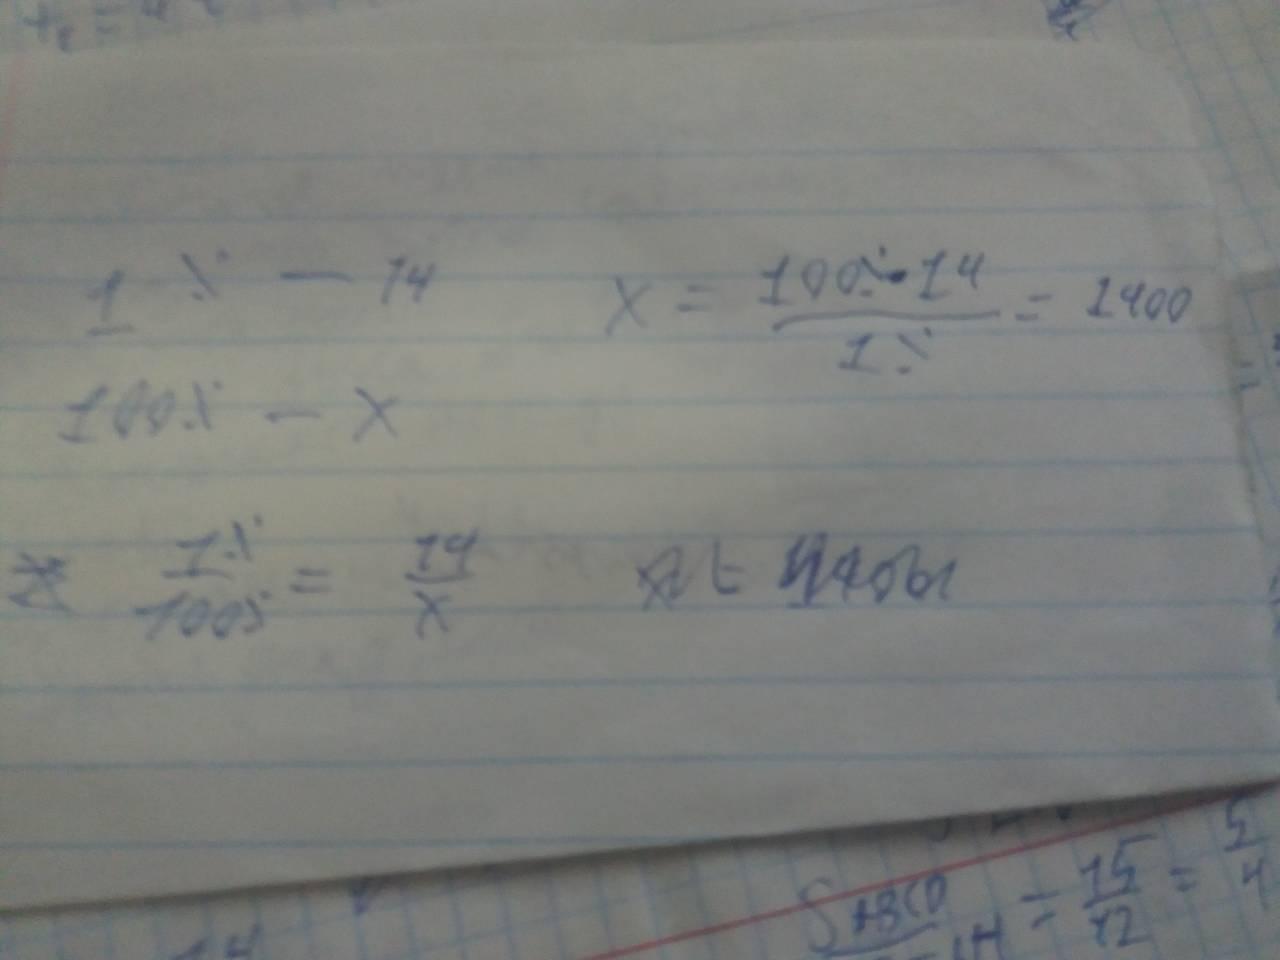 1 % — 14
x = 100% • 14 / 1% = 1400
100% — x
1% / 100% = 14 / x
= 15/12 = 5/4